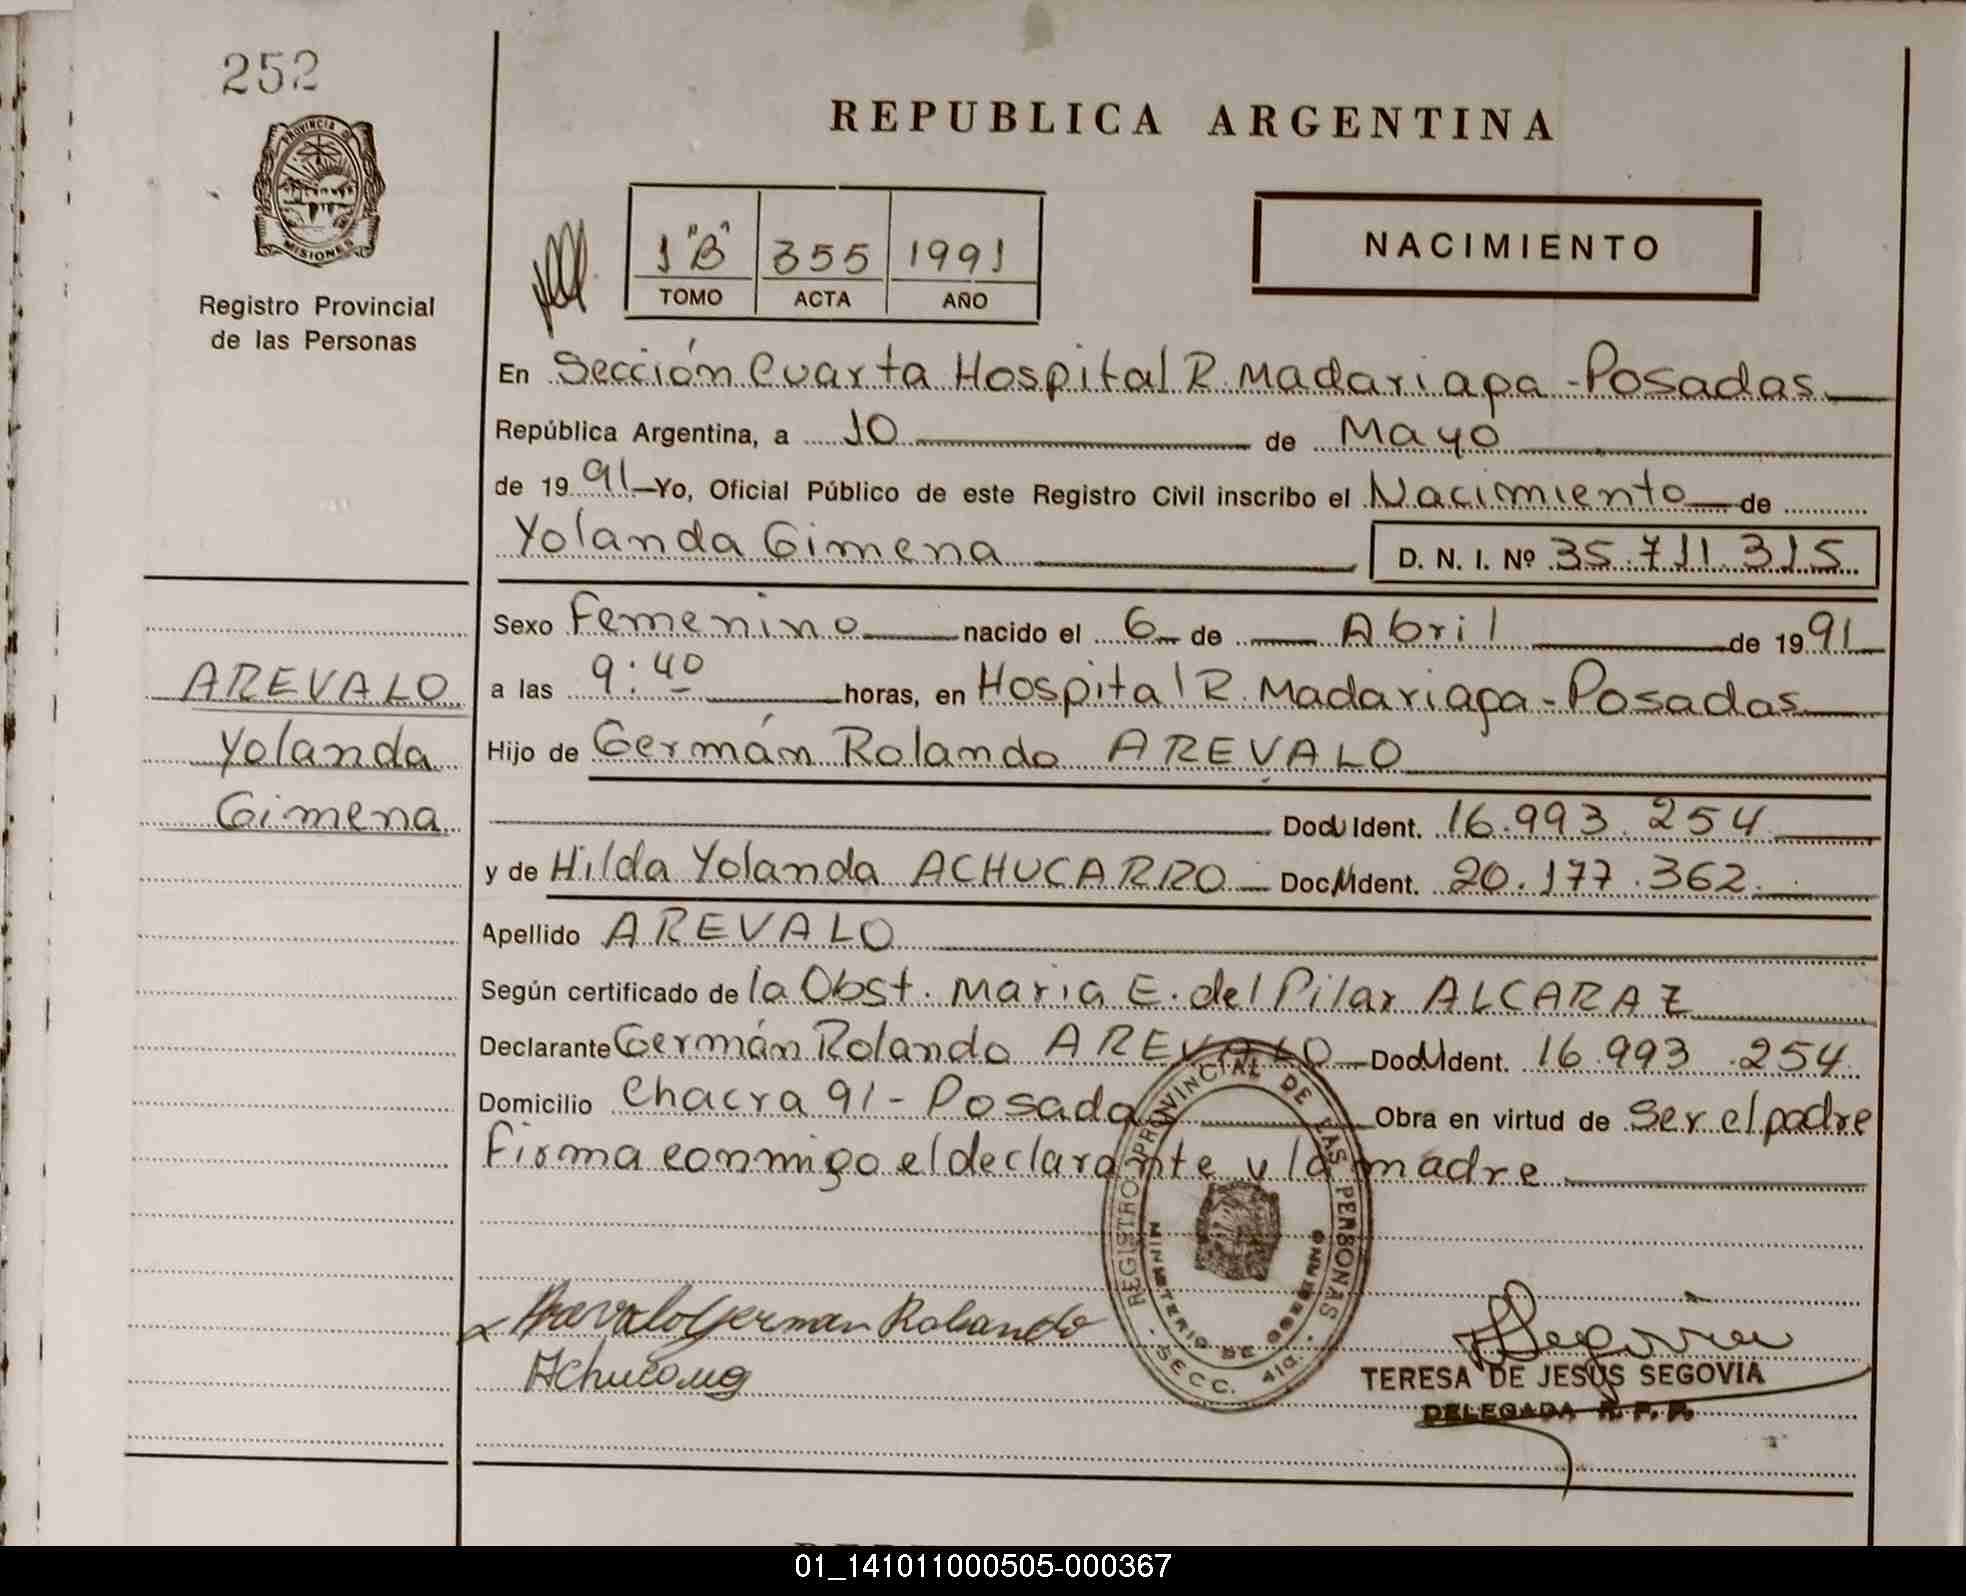 252
PROVINCIA DE
MISIONES
Registro Provincial
de las Personas
AREVALO
Yolanda
Gimena
REPUBLICA ARGENTINA
1 "B" 355 1991
TOMO ACTA AÑO
NACIMIENTO
En Sección Cuarta Hospital R. Madariaga - Posadas
República Argentina, a 10 de Mayo
de 1991 Yo, Oficial Público de este Registro Civil inscribo el Nacimiento de
Yolanda Gimena D. N. I. Nº 35.711.315
Sexo Femenino nacido el 6 de Abril de 1991
a las 9:40 horas, en Hospital R. Madariaga - Posadas
Hijo de Germán Rolando AREVALO
Doc. Ident. 16.993.254
y de Hilda Yolanda ACHUCARRO Doc. Ident. 20.177.362
Apellido AREVALO
Según certificado de la Obst. Maria E. del Pilar ALCARAZ
Declarante Germán Rolando AREVALO Doc. Ident. 16.993.254
Domicilio Chacra 91 - Posadas Obra en virtud de Ser el padre
Firma conmigo el declarante y la madre
REGISTRO PROVINCIAL DE LAS PERSONAS
MINISTERIO DE GOBIERNO
SECC. 4ta
Arevalo German Rolando
Segovia
TERESA DE JESÚS SEGOVIA
DELEGADA R. P. P.
01_141011000505-000367